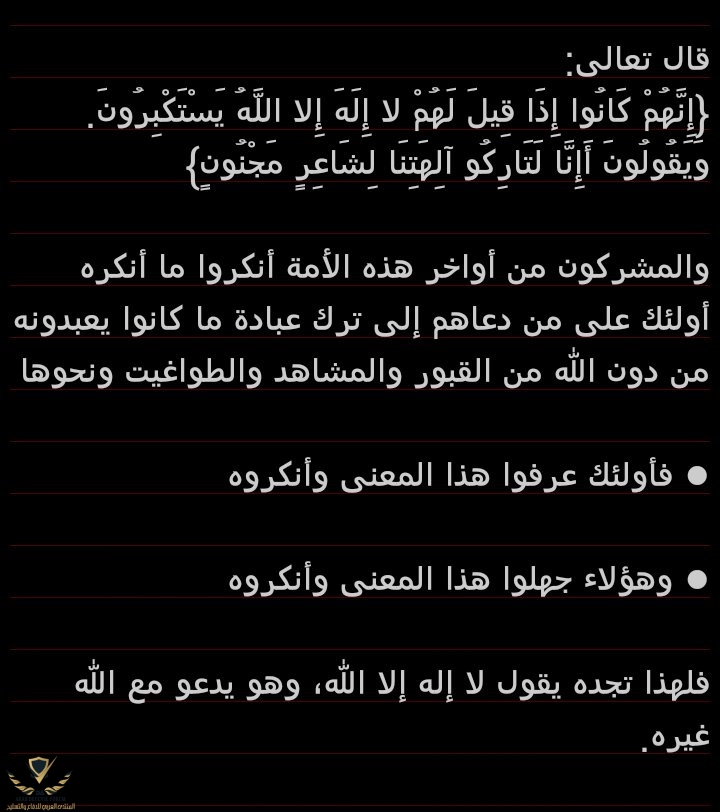 قال تعالى:
{إِنَّهُمْ كَانُوا إِذَا قِيلَ لَهُمْ لا إِلَهَ إِلا اللَّهُ يَسْتَكْبِرُونَ.
وَيَقُولُونَ أَإِنَّا لَتَارِكُو آلِهَتِنَا لِشَاعِرٍ مَجْنُونٍ}
والمشركون من أواخر هذه الأمة أنكروا ما أنكره
أولئك على من دعاهم إلى ترك عبادة ما كانوا يعبدونه
من دون الله من القبور والمشاهد والطواغيت ونحوها
● فأولئك عرفوا هذا المعنى وأنكروه
● وهؤلاء جهلوا هذا المعنى وأنكروه
فلهذا تجده يقول لا إله إلا الله، وهو يدعو مع الله
غيره.
المنتدى العربي للدفاع والتسليح